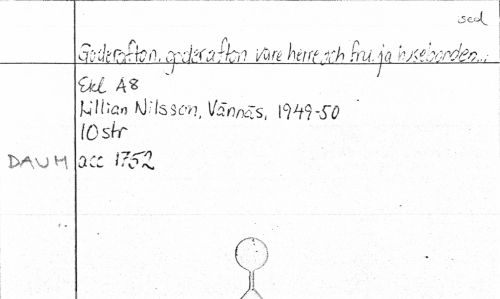 sed
Goderafton, goderafton vare herre och fru, ja husebonden...
Ekl A8
Lillian Nilsson, Vännäs, 1949-50
10 str
DAUM acc 1752